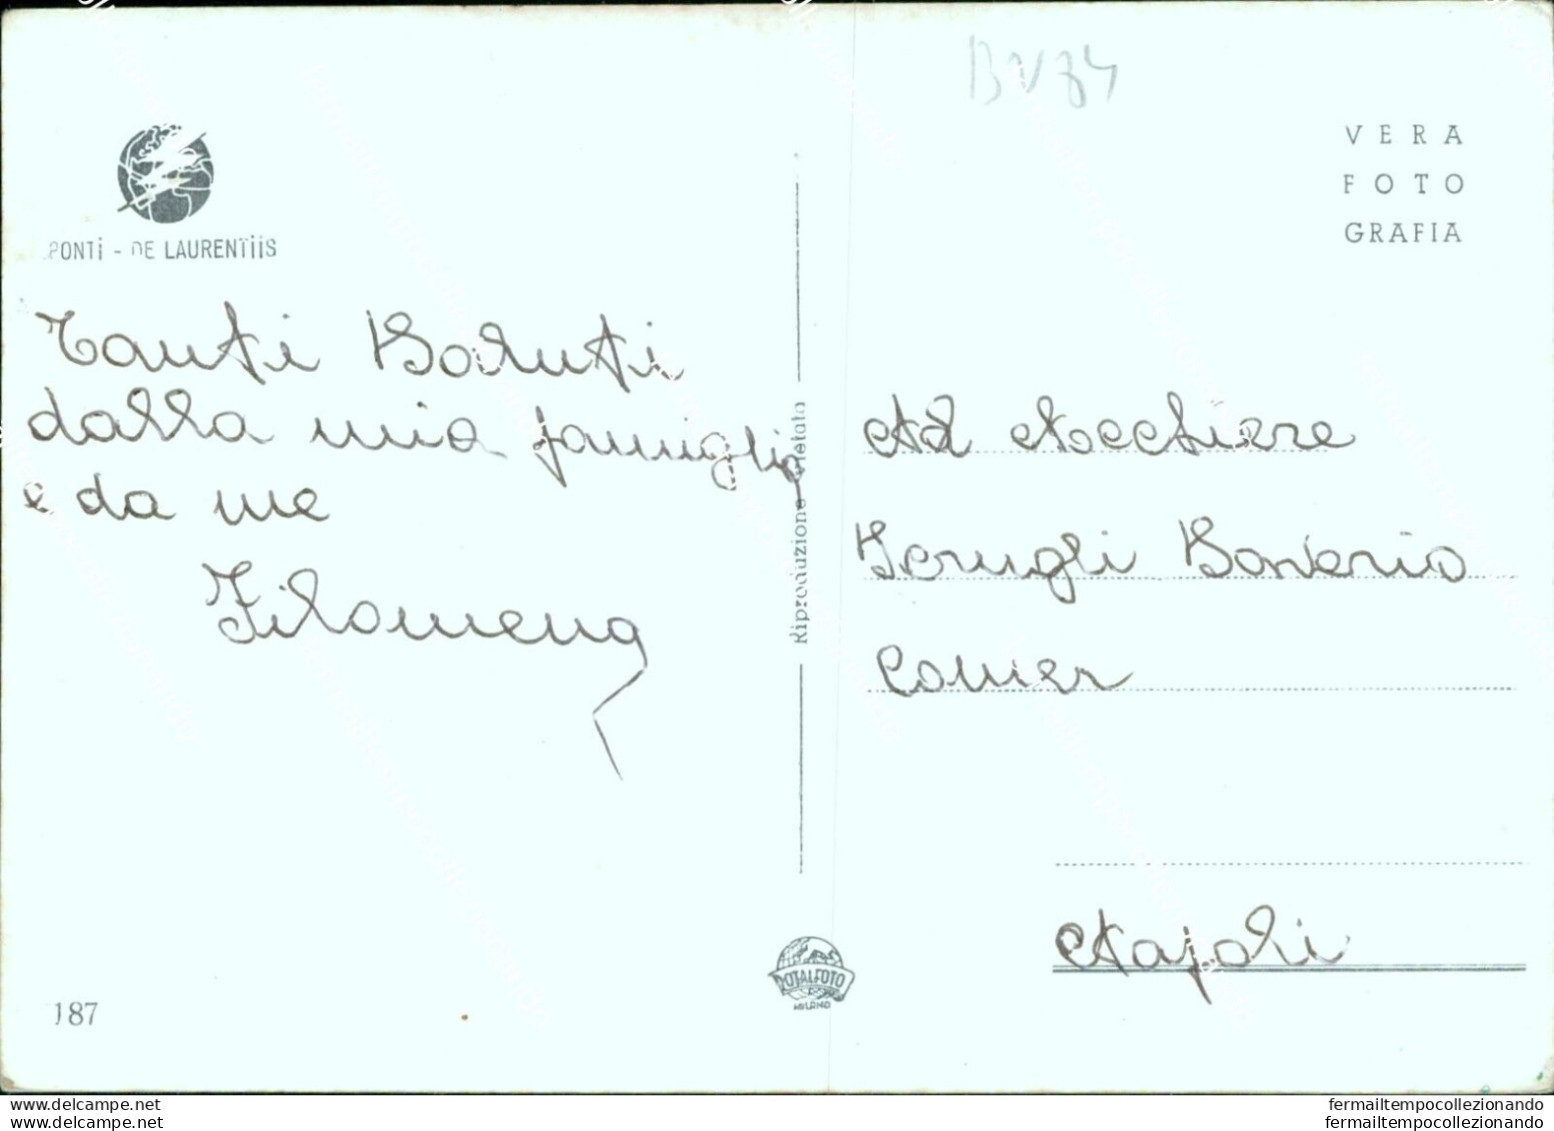 BV84
PONTi - DE LAURENTiiS
VERA
FOTO
GRAFIA
Tanti Saluti
dalla mia famiglia
e da me
Filomena
Riproduzione vietata
Al
Saverio
Napoli
ROTALFOTO
MILANO
187
www.delcampe.net
www.delcampe.net
fermailtempocollezionando
fermailtempocollezionando